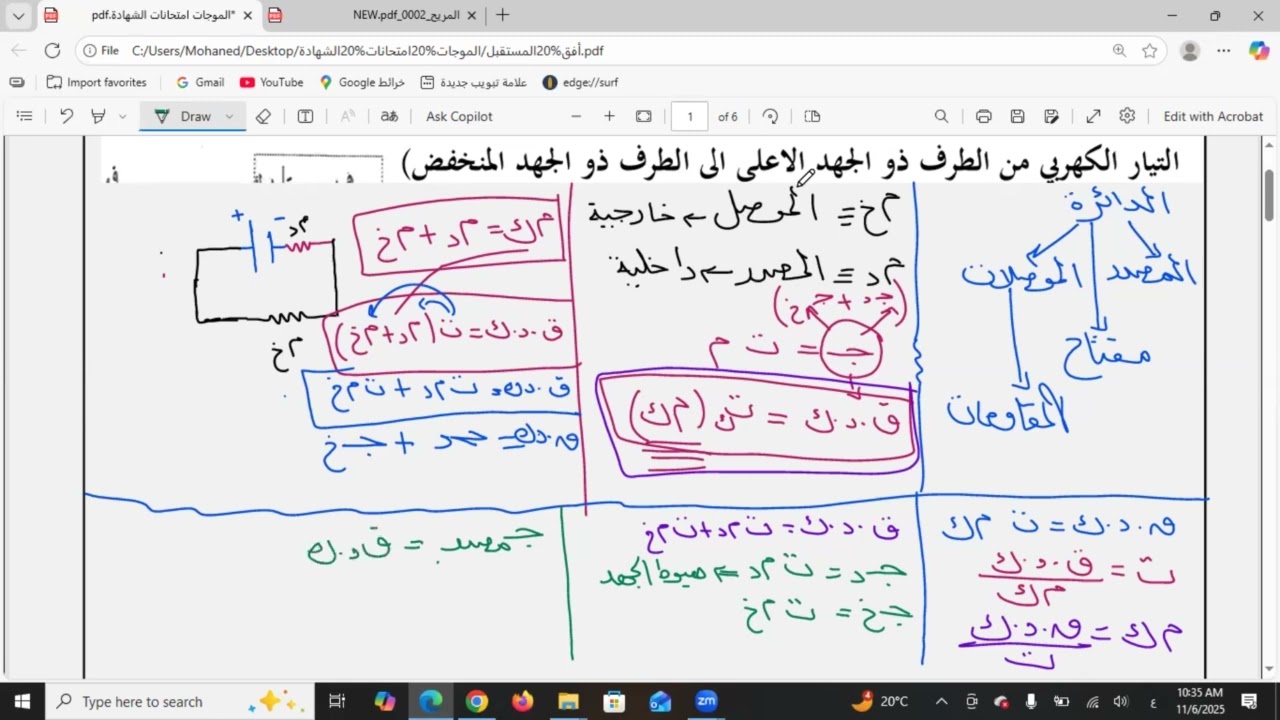 الموجات امتحانات الشهادة.pdf*
المريح_0002_NEW.pdf
File
C:/Users/Mohaned/Desktop/أفق%20المستقبل/الموجات%20امتحانات%20الشهادة.pdf
Import favorites
Gmail
YouTube
خرائط Google
علامة تبويب جديدة
edge://surf
Draw
Ask Copilot
1 of 6
Edit with Acrobat
التيار الكهربي من الطرف ذو الجهد الاعلى الى الطرف ذو الجهد المنخفض)
الدائرة
المصدر
الموصلات
مفتاح
المقاومات
م خ ≡ الموصل ← خارجية
م د ≡ المصدر ← داخلية
(جد + جخ)
جـ = ت م
ق.د.ك = ت (م ك)
+ -
م د
م خ
م ك = م د + م خ
ق.د.ك = ت (م د + م خ)
ق.د.ك = ت م د + ت م خ
ق.د.ك = جـ د + جـ خ
ق.د.ك = ت م ك
ت = ق.د.ك / م ك
م ك = ق.د.ك / ت
ق.د.ك = ت م د + ت م خ
جـ د = ت م د ← هبوط الجهد
جـ خ = ت م خ
جـ مصدر = ق.د.ك
Type here to search
20°C
10:35 AM
11/6/2025